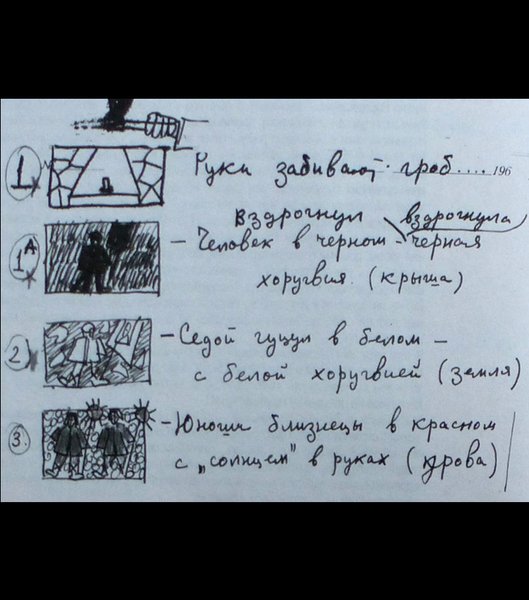 1. Руки забивают гроб.... 196
вздрогнул вздрогнула
1А – Человек в черном – черная
хоругвия. (крыша)
2. – Седой гуцул в белом –
с белой хоругвией (земля)
3. – Юноши близнецы в красном
с „солнцем" в руках (дрова)